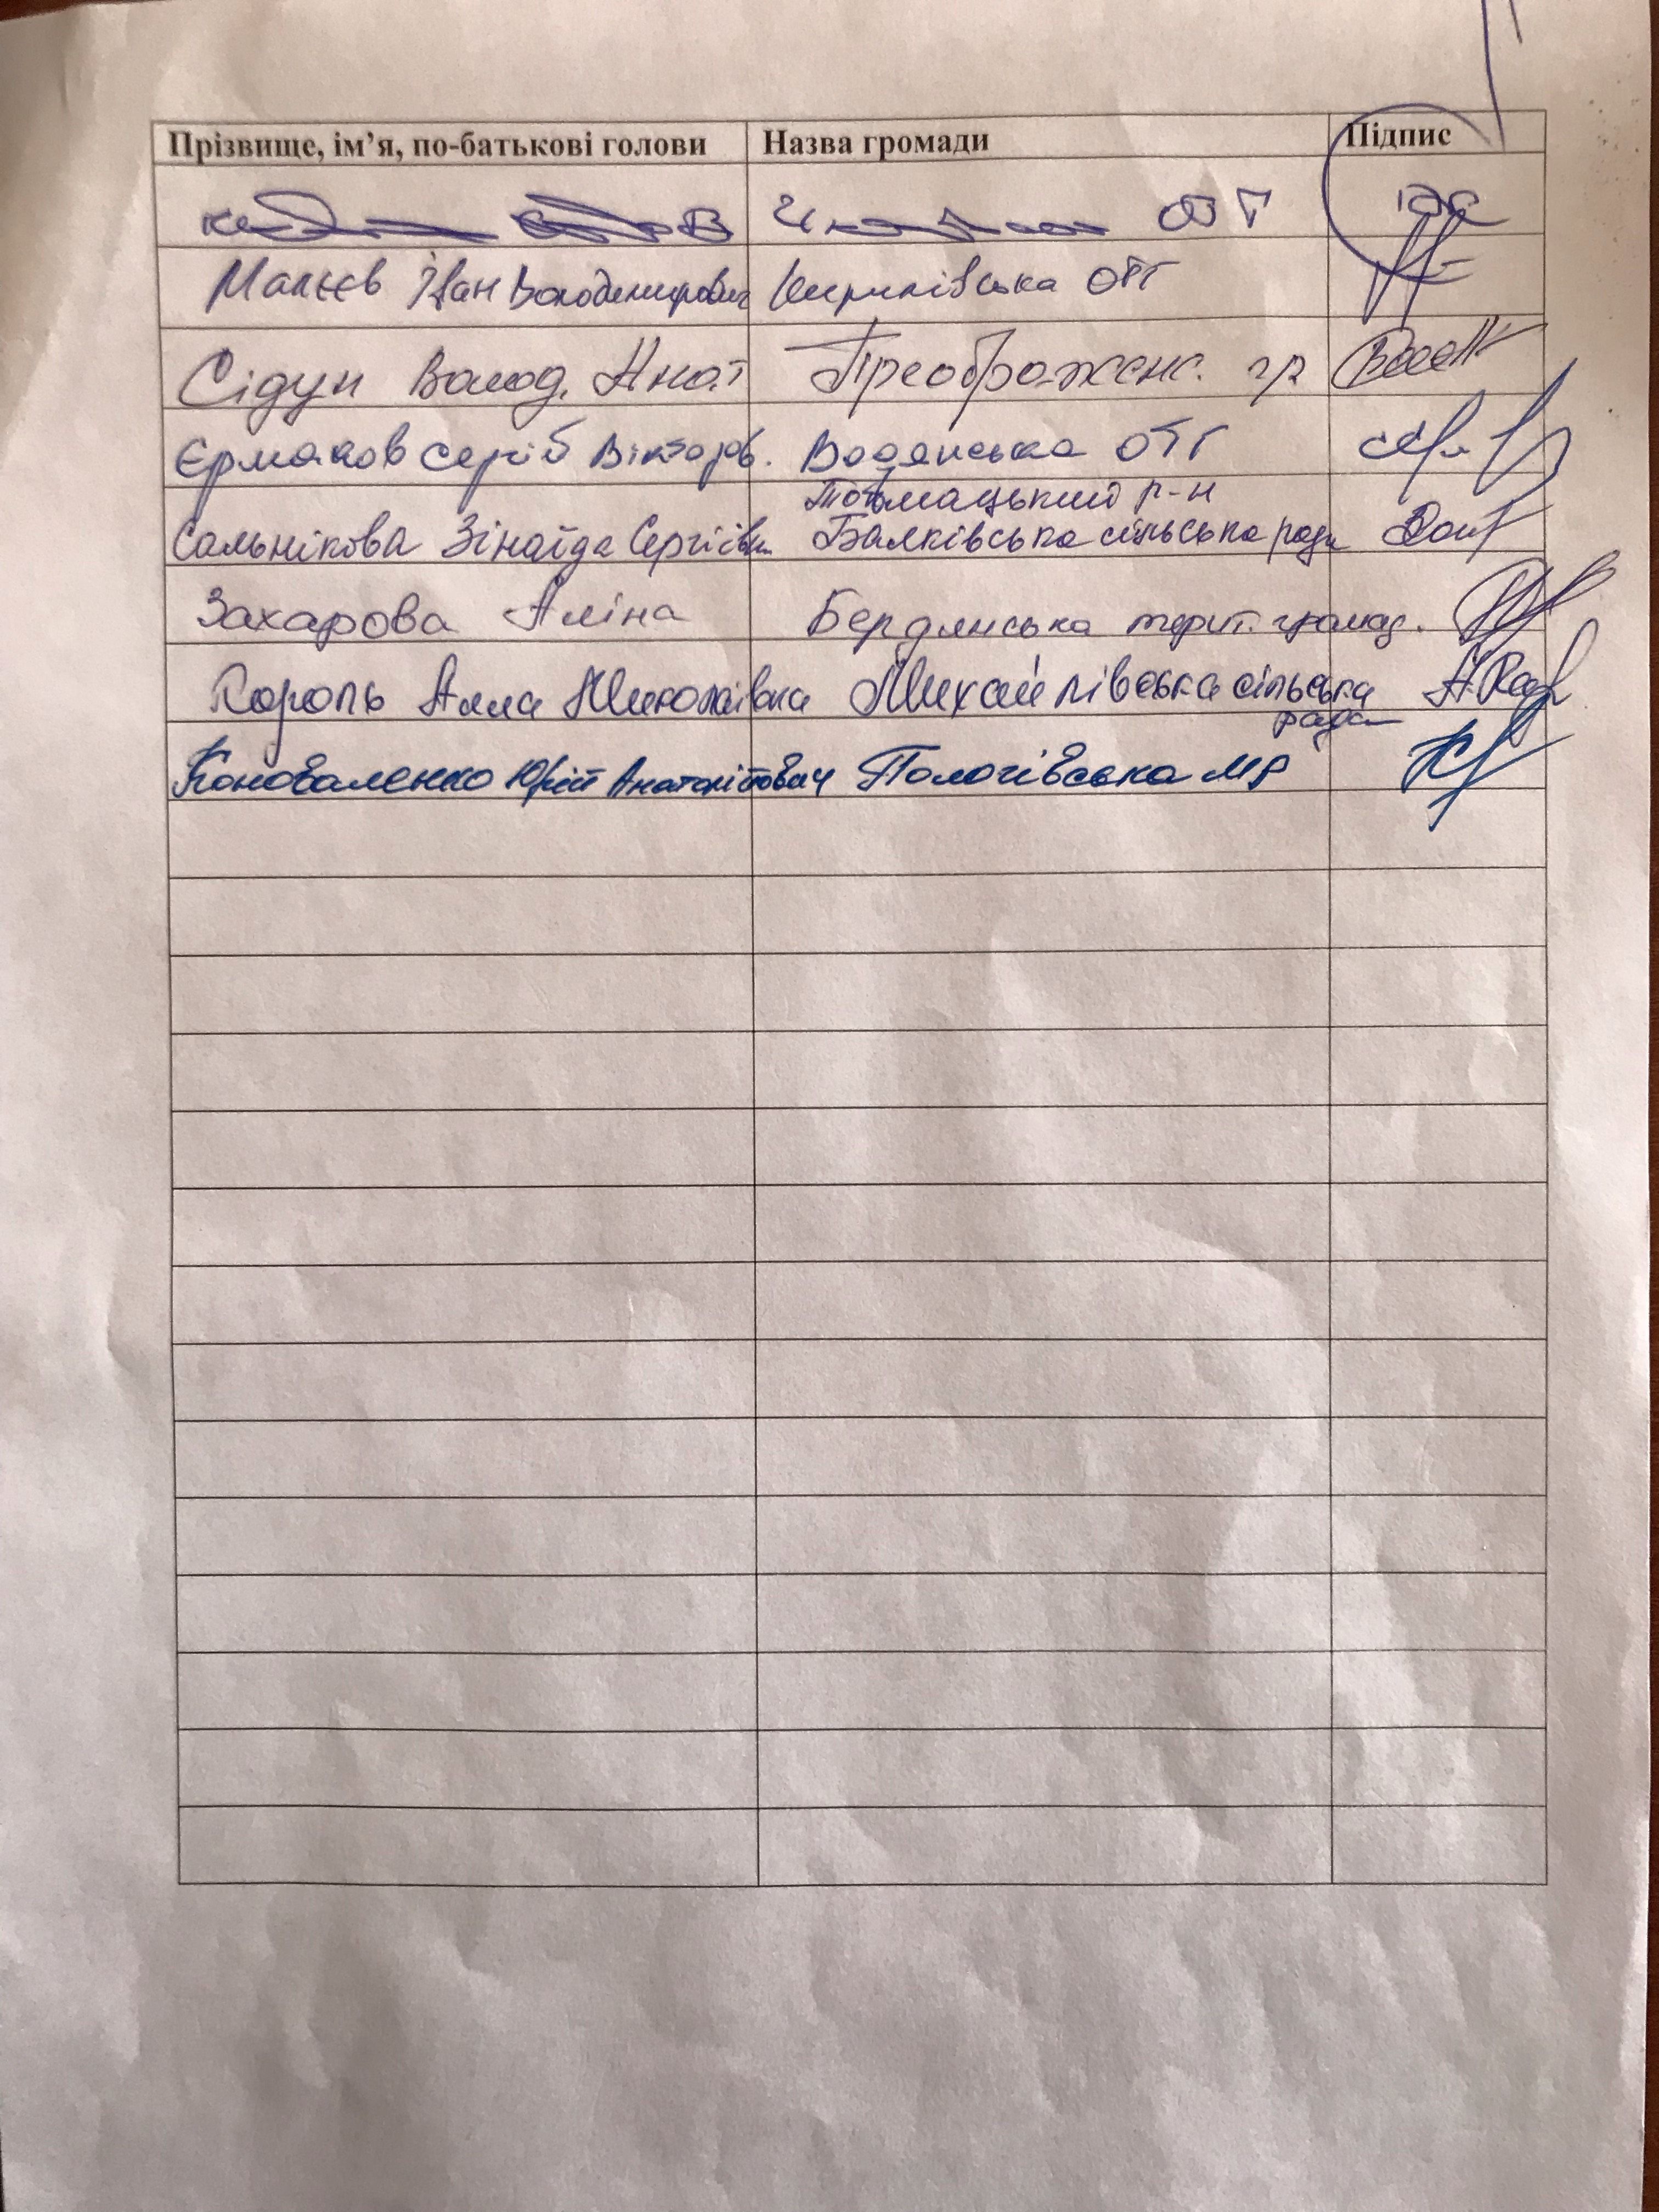 Прізвище, ім’я, по-батькові голови Назва громади Підпис
ОТГ
Малєєв Іван Володимирович Кирилівська ОТГ
Сідун Волод. Анат Преображенс. гр
Єрмаков Сергій Вікторов. Водянська ОТГ
Токмацький р-н
Сальнікова Зінаїда Сергіївн Балківська сільська рада
Захарова Аліна Бердянська терит. громад.
Король Алла Миколаївна Михайлівська сільська
рада
Коноваленко Юрій Анатолійович Пологівська МР